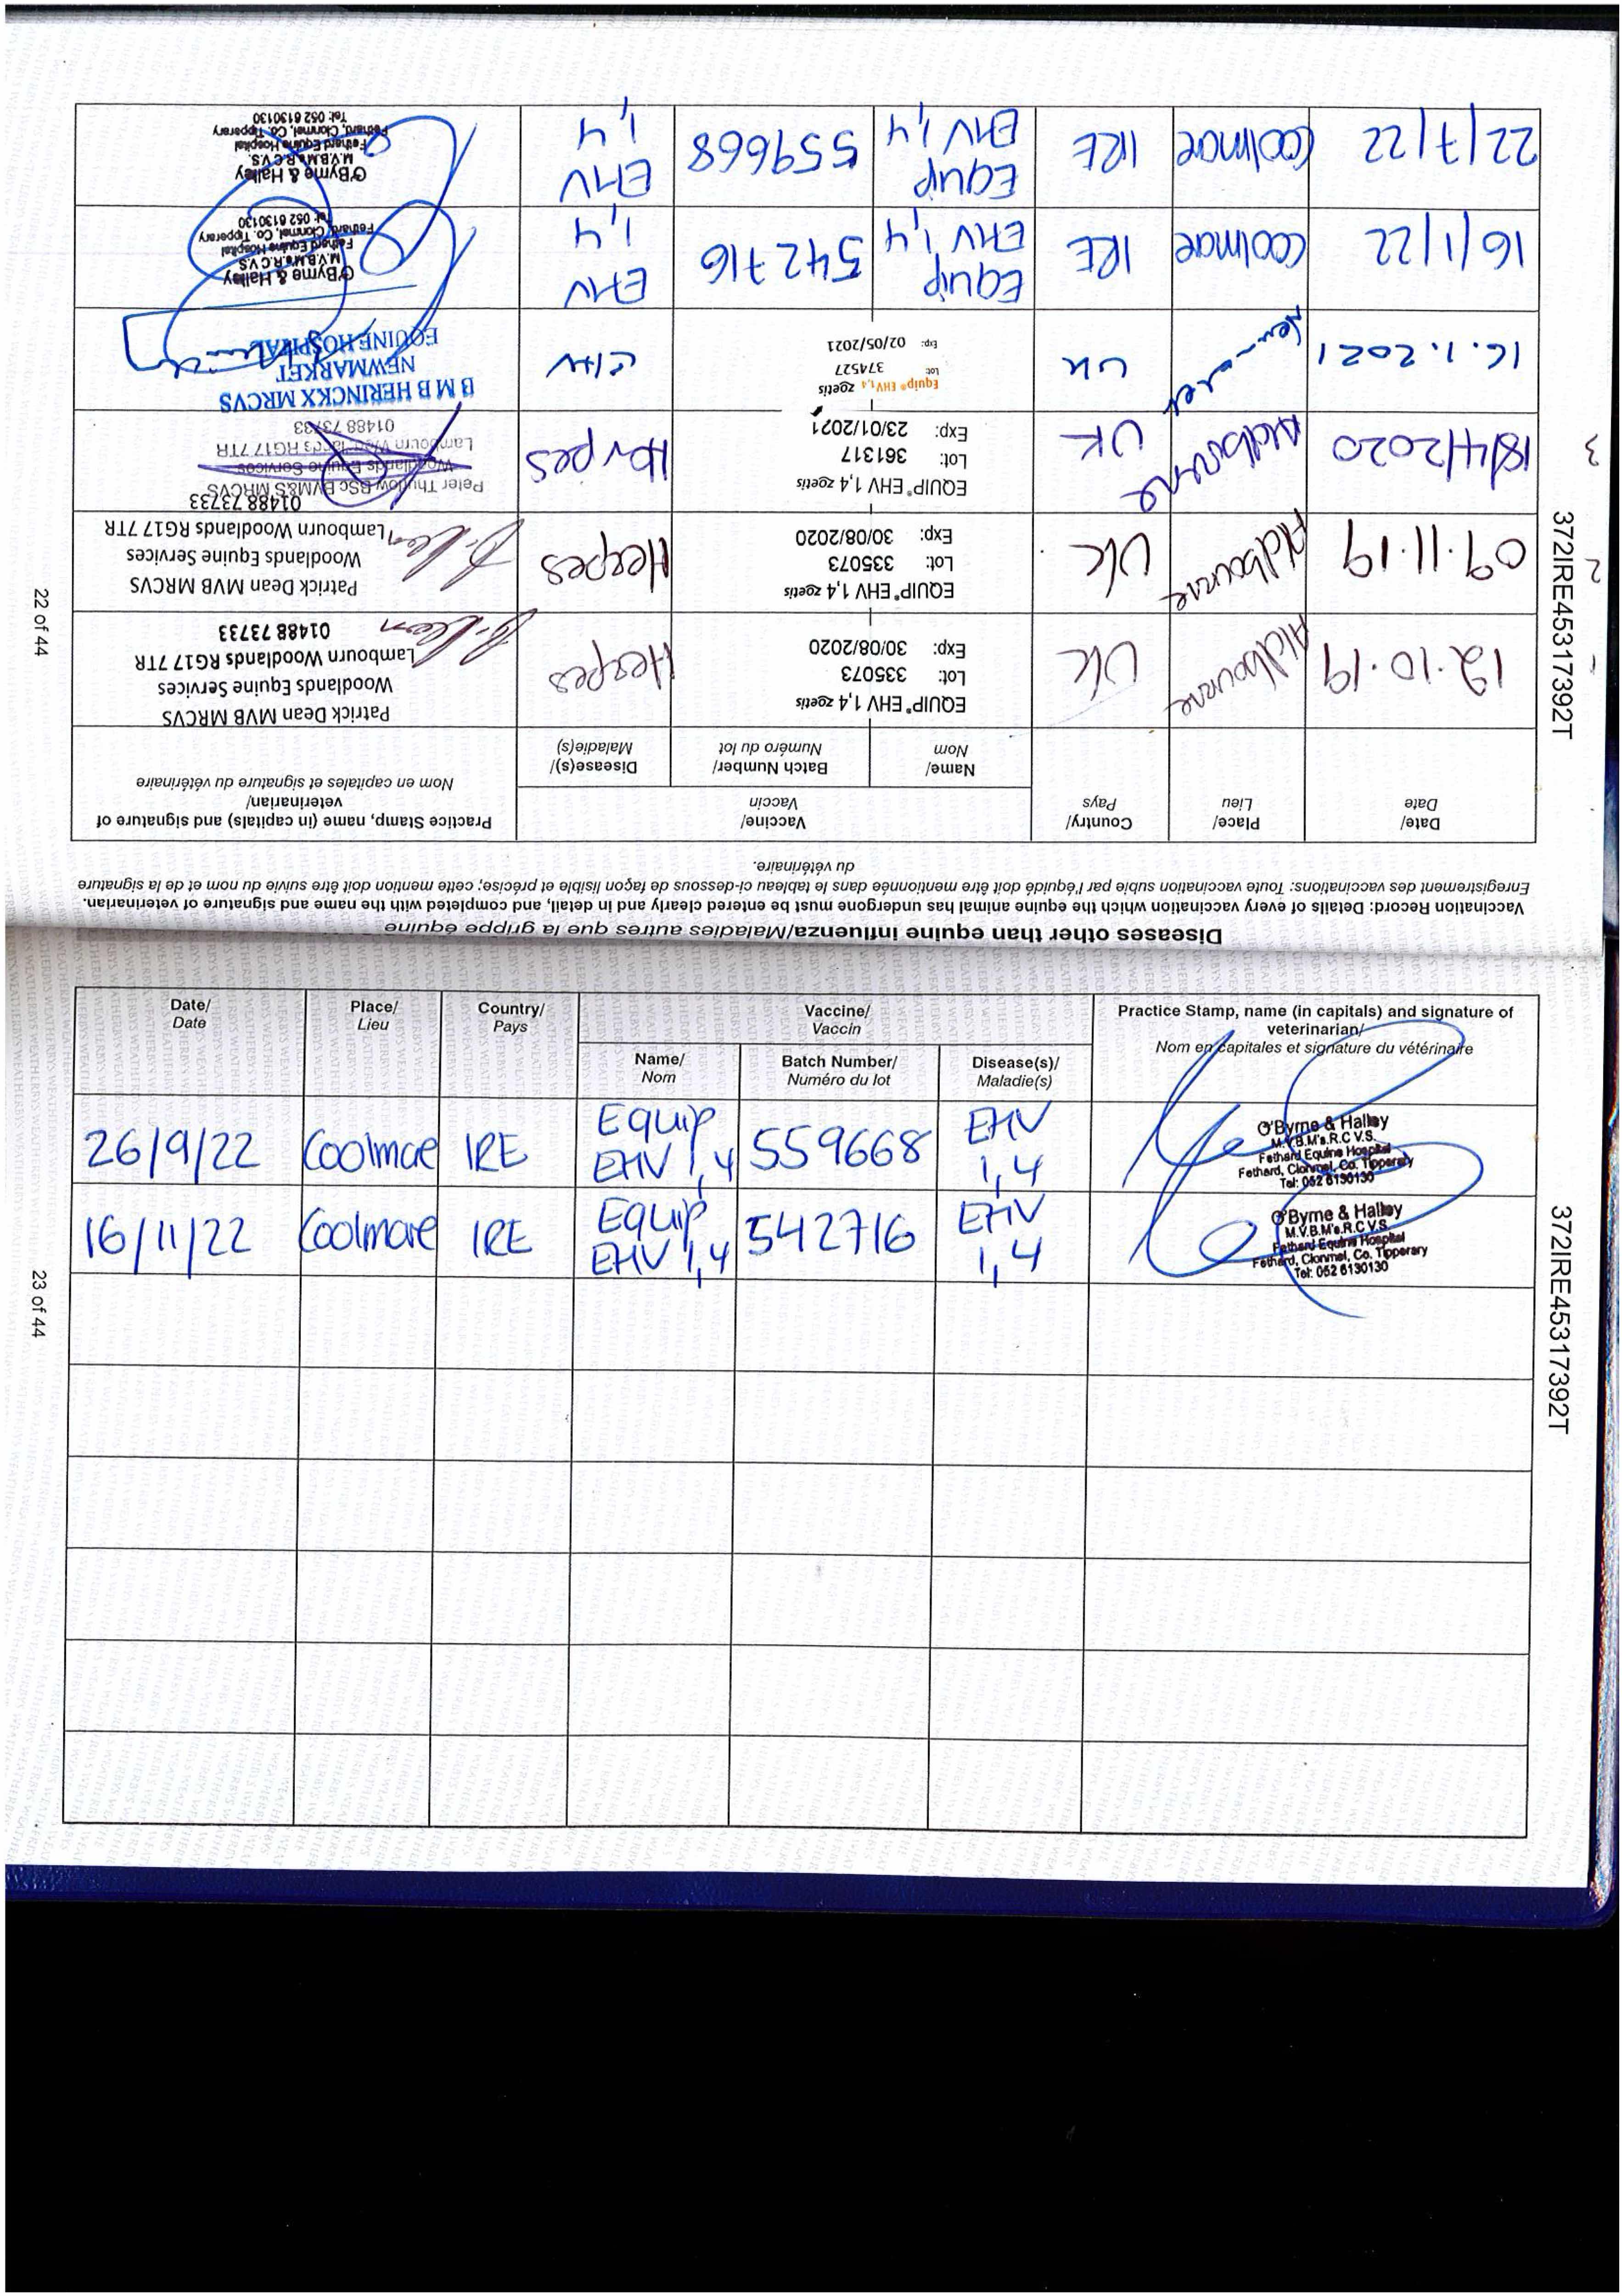 Diseases other than equine influenza/Maladies autres que la grippe équine
Vaccination Record: Details of every vaccination which the equine animal has undergone must be entered clearly and in detail, and completed with the name and signature of veterinarian.
Enregistrement des vaccinations: Toute vaccination subie par l'équidé doit être mentionnée dans le tableau ci-dessous de façon lisible et précise; cette mention doit être suivie du nom et de la signature
du vétérinaire.
Date/
Date
Place/
Lieu
Country/
Pays
Vaccine/
Vaccin
Name/
Nom
Batch Number/
Numéro du lot
Disease(s)/
Maladie(s)
Practice Stamp, name (in capitals) and signature of
veterinarian/
Nom en capitales et signature du vétérinaire
1
12.10.19
Aldbourne
UK
EQUIP® EHV 1,4 zoetis
Lot: 335073
Exp: 30/08/2020
Herpes
Patrick Dean MVB MRCVS
Woodlands Equine Services
Lambourn Woodlands RG17 7TR
01488 73733
2
09.11.19
Aldbourne
UK
EQUIP® EHV 1,4 zoetis
Lot: 335073
Exp: 30/08/2020
Herpes
Patrick Dean MVB MRCVS
Woodlands Equine Services
Lambourn Woodlands RG17 7TR
01488 73733
3
18/4/2020
Aldbourne
UK
EQUIP® EHV 1,4 zoetis
Lot: 361317
Exp: 23/01/2021
Herpes
Peter Thurlow BSc BVM&S MRCVS
Woodlands Equine Services
Lambourn Woodlands RG17 7TR
01488 73733
16.1.2021
Newmarket
UK
Equip® EHV 1,4 zoetis
Lot: 374527
Exp: 02/05/2021
EHV
B M B HERINCKX MRCVS
NEWMARKET
EQUINE HOSPITAL
16/1/22
Coolmore
IRE
Equip
EHV 1,4
542716
EHV
1,4
O'Byrne & Halley
M.V.B.M's.R.C.V.S.
Fethard Equine Hospital
Fethard, Clonmel, Co. Tipperary
Tel: 052 6130130
22/7/22
Coolmore
IRE
Equip
EHV 1,4
559668
EHV
1,4
O'Byrne & Halley
M.V.B.M's.R.C.V.S.
Fethard Equine Hospital
Fethard, Clonmel, Co. Tipperary
Tel: 052 6130130
372IRE45317392T
22 of 44
Date/
Date
Place/
Lieu
Country/
Pays
Vaccine/
Vaccin
Name/
Nom
Batch Number/
Numéro du lot
Disease(s)/
Maladie(s)
Practice Stamp, name (in capitals) and signature of
veterinarian/
Nom en capitales et signature du vétérinaire
26/9/22
Coolmore
IRE
Equip
EHV 1,4
559668
EHV
1,4
O'Byrne & Halley
M.V.B.M's.R.C.V.S.
Fethard Equine Hospital
Fethard, Clonmel, Co. Tipperary
Tel: 052 6130130
16/11/22
Coolmore
IRE
Equip
EHV 1,4
542716
EHV
1,4
O'Byrne & Halley
M.V.B.M's.R.C.V.S.
Fethard Equine Hospital
Fethard, Clonmel, Co. Tipperary
Tel: 052 6130130
372IRE45317392T
23 of 44